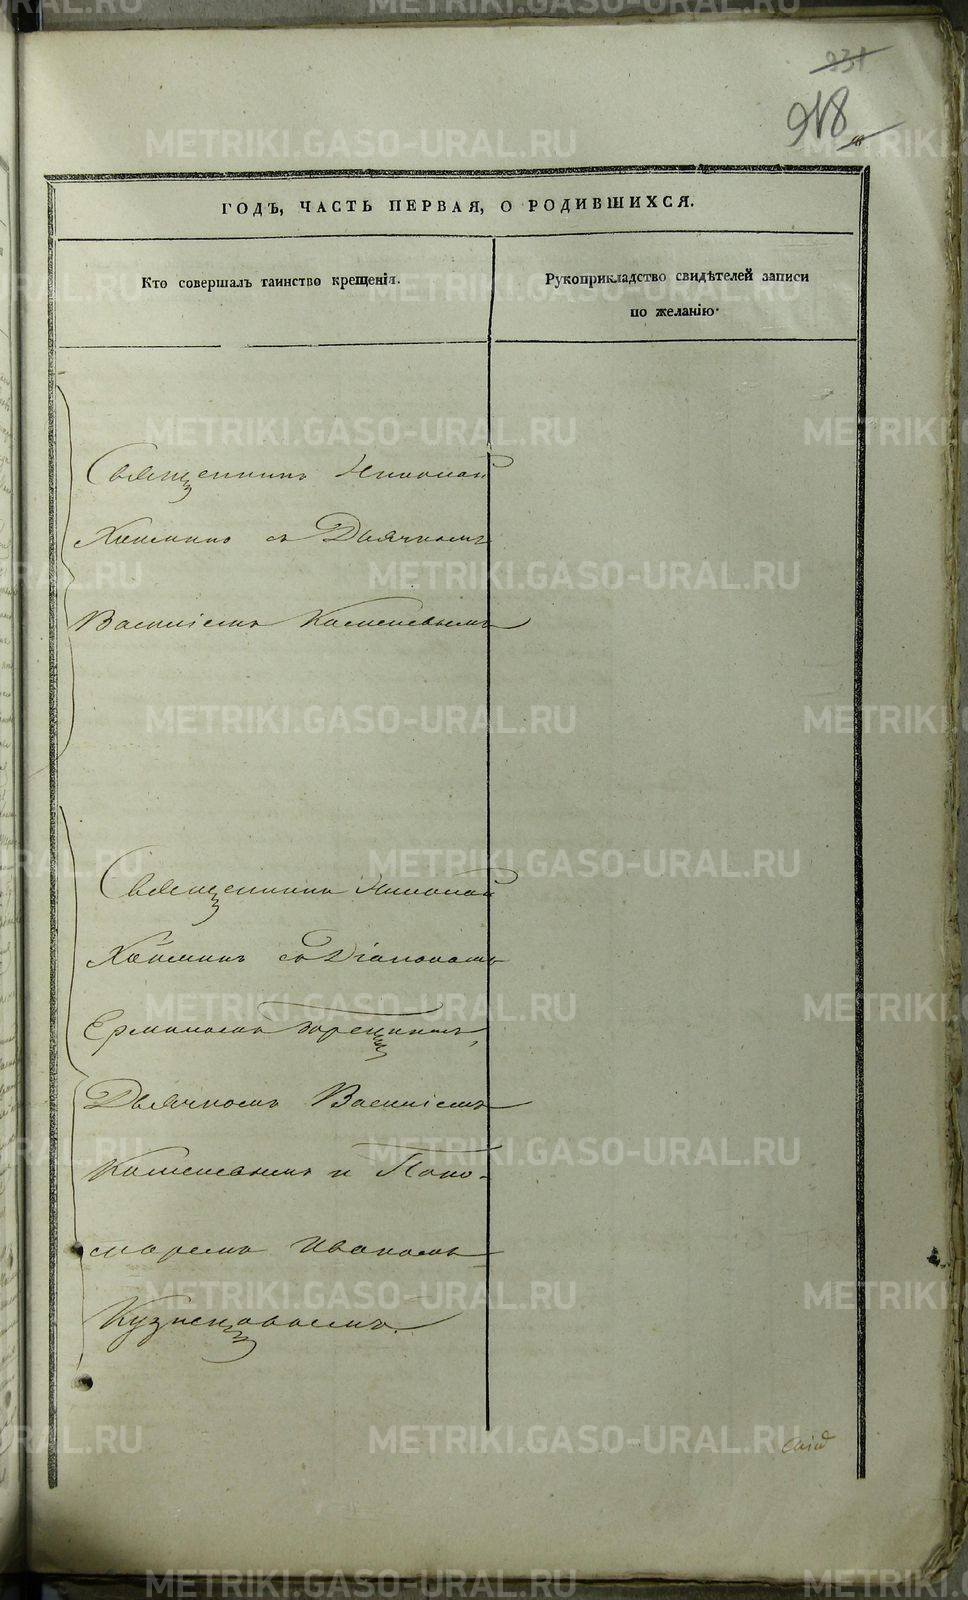 231
218
ГОДЪ, ЧАСТЬ ПЕРВАЯ, О РОДИВШИХСЯ.
Кто совершалъ таинство крещенія.
Рукоприкладство свидѣтелей записи
по желанію.
Священникъ Николай
съ Дьячкомъ
Василіемъ Каменевымъ
Священникъ Николай
съ Діакономъ
Ермиломъ
Дьячкомъ Василіемъ
Каменевымъ и Поно-
маремъ Иваномъ
Кузнецовымъ.
METRIKI.GASO-URAL.RU